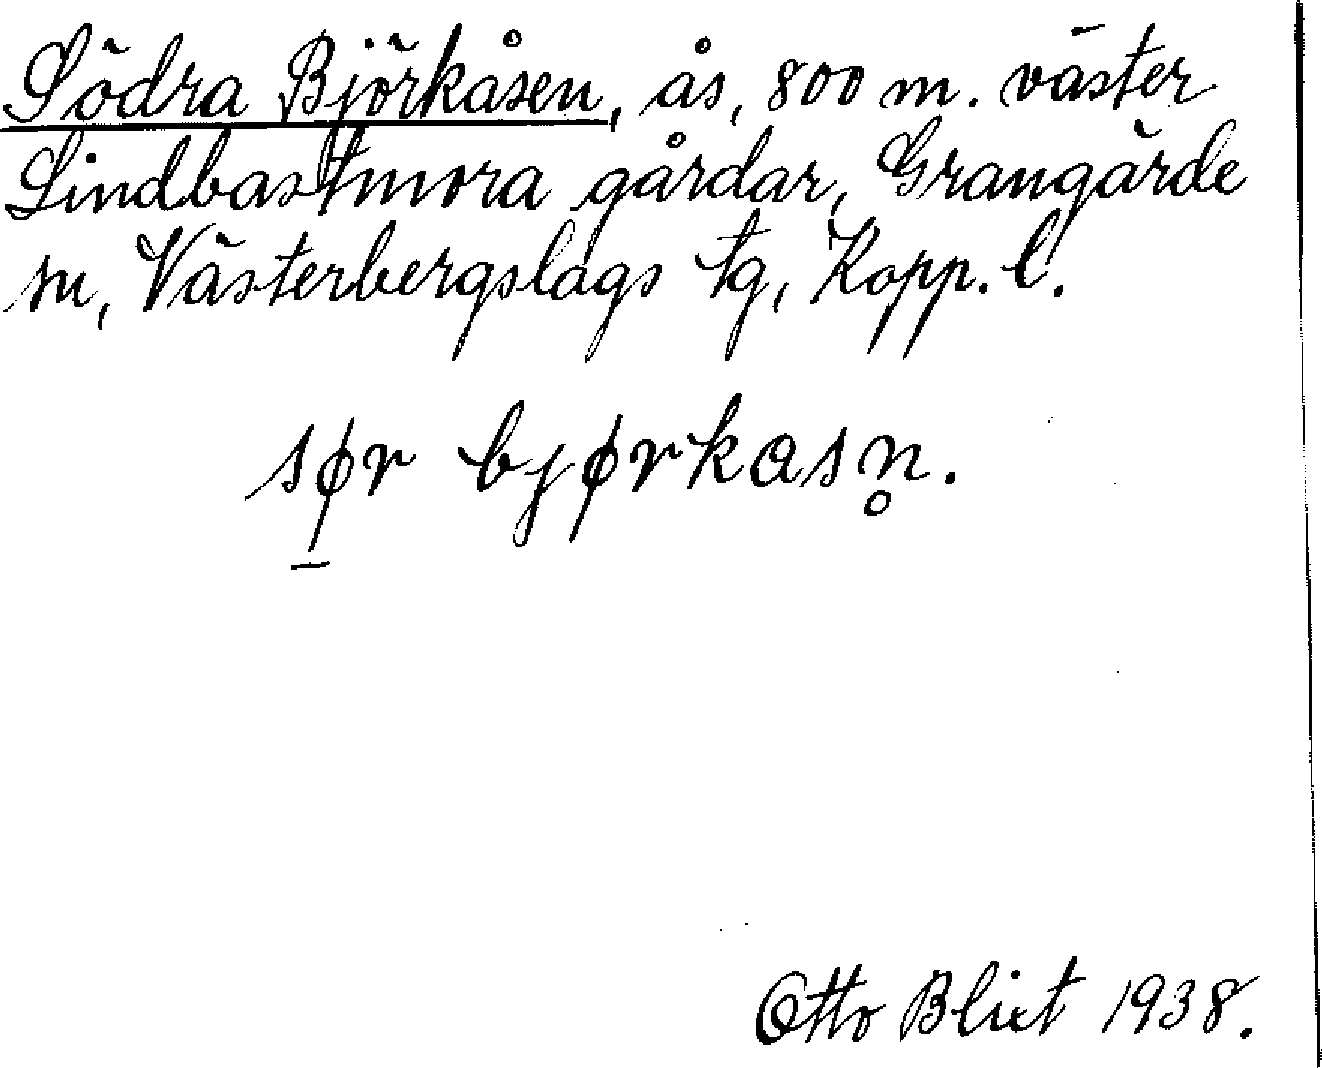 Södra Björkåsen, ås, 800 m. väster
Lindbastmora gårdar, Grangärde
sn, Västerbergslags tg, Kopp. l.
sø̠r bjørkasn̥.
Otto Blixt 1938.